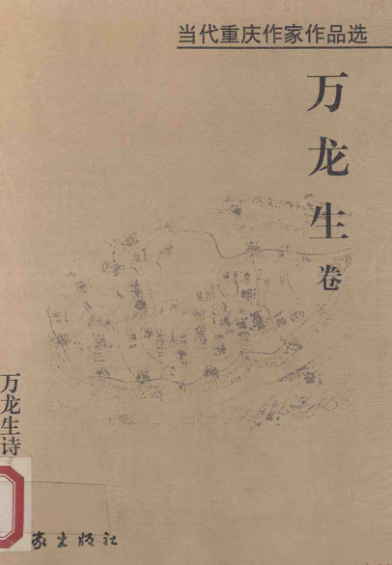 当代重庆作家作品选
万龙生
卷
万龙生诗
家出版社